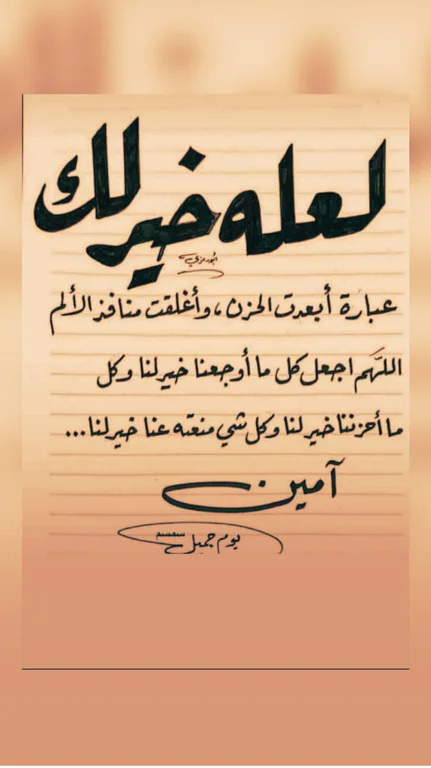 لعله خير لك
أبو رمزي
عبارة أبعدت الحزن، وأغلقت منافذ الألم
اللهم اجعل كل ما أوجعنا خير لنا وكل
ما أحزننا خير لنا وكل شي منعته عنا خير لنا...
آمين
يوم جميل